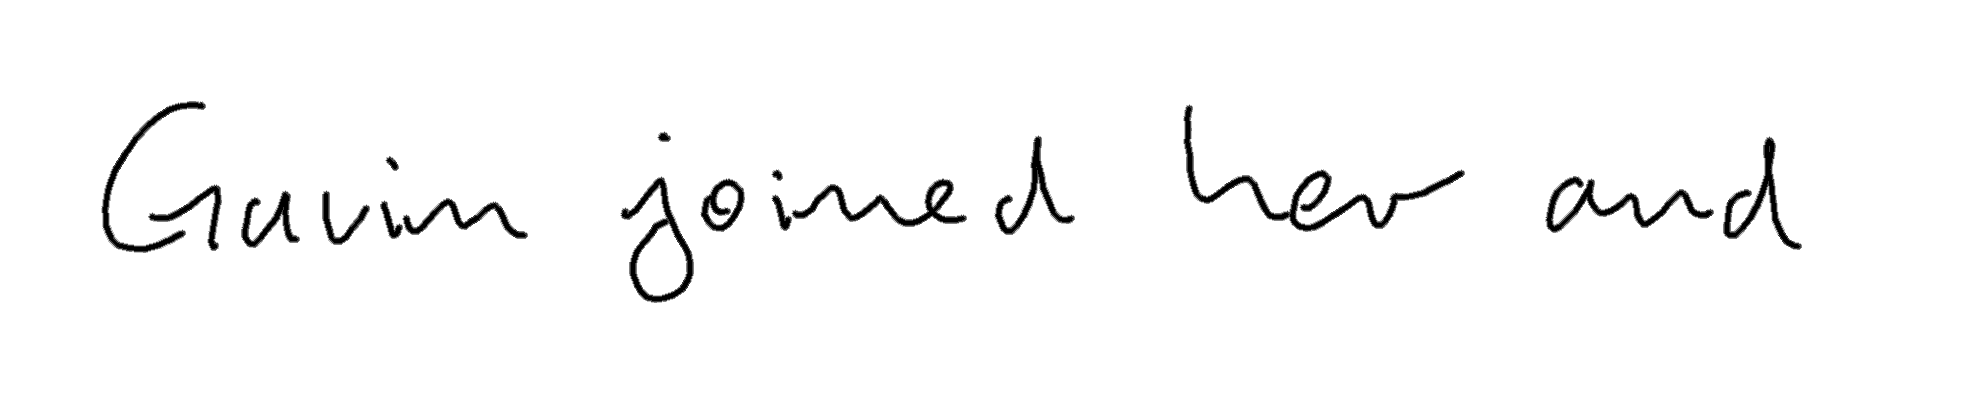 Gavin joined her and